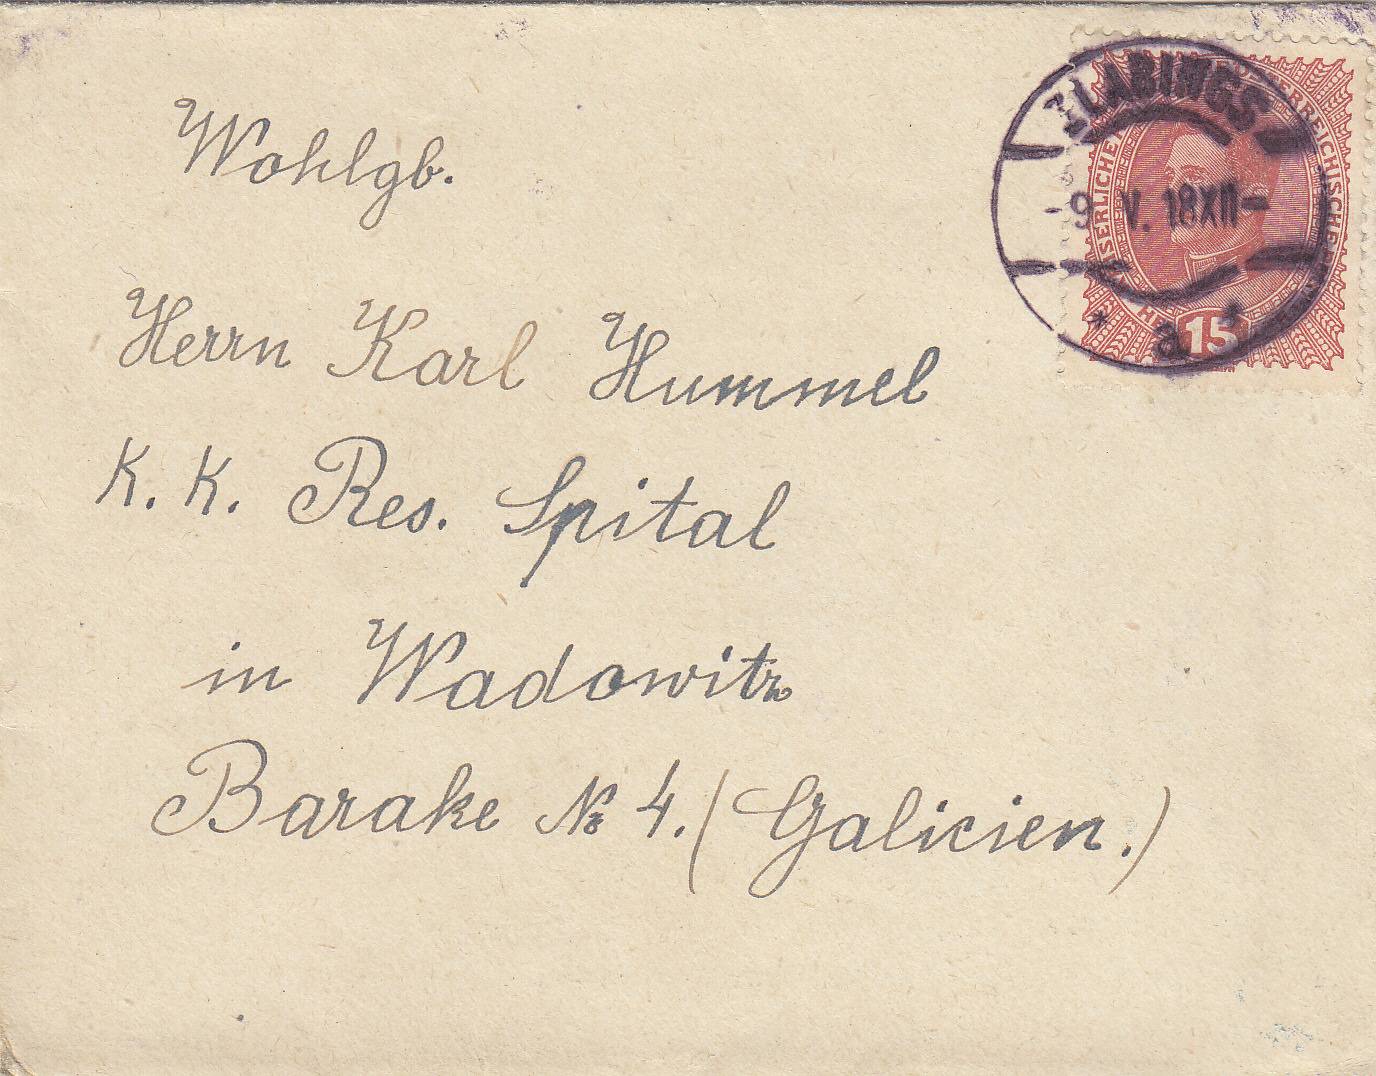 ZLABINGS
-9. V. 18 XII-
* a *
KAISERLICHE KÖNIGLICHE ÖSTERREICHISCHE POST
15
Wohlgb.
Herrn Karl Hummel
K. K. Res. Spital
in Wadowitz
Barake № 4. (Galicien.)